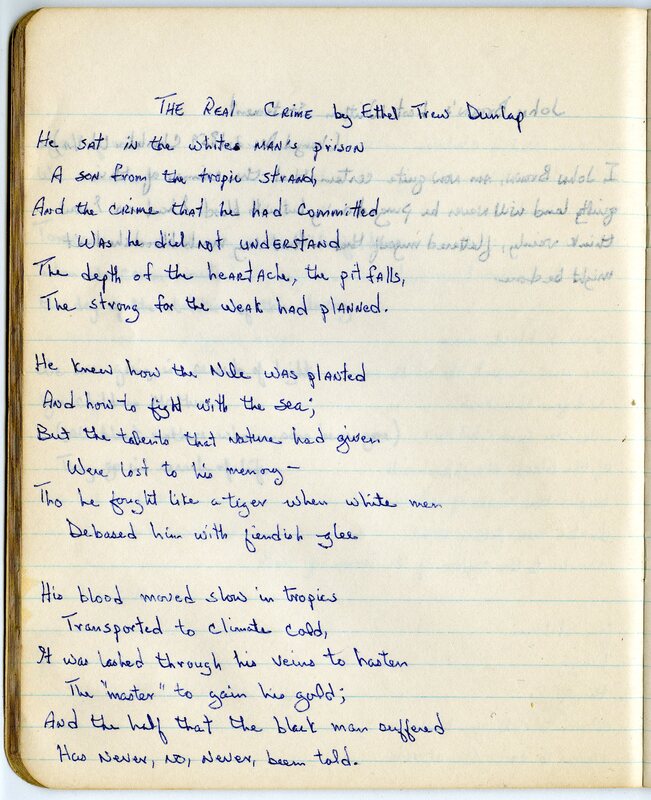 THE REAL CRIME by Ethel Trew Dunlap
He sat in the white MAN'S prison
A son from the tropic strand,
And the crime that he had committed
Was he did not UNDERSTAND
The depth of the heartache, the pitfalls,
The strong for the weak had planned.
He knew how the Nile was planted
And how to fight with the sea;
But the talents that nature had given
Were lost to his memory—
Tho he fought like a tiger when white men
Debased him with fiendish glee
His blood moved slow in tropics
Transported to climate cold,
It was lashed through his veins to hasten
The "master" to gain his gold;
And the half that the black man suffered
Has never, no, never, been told.